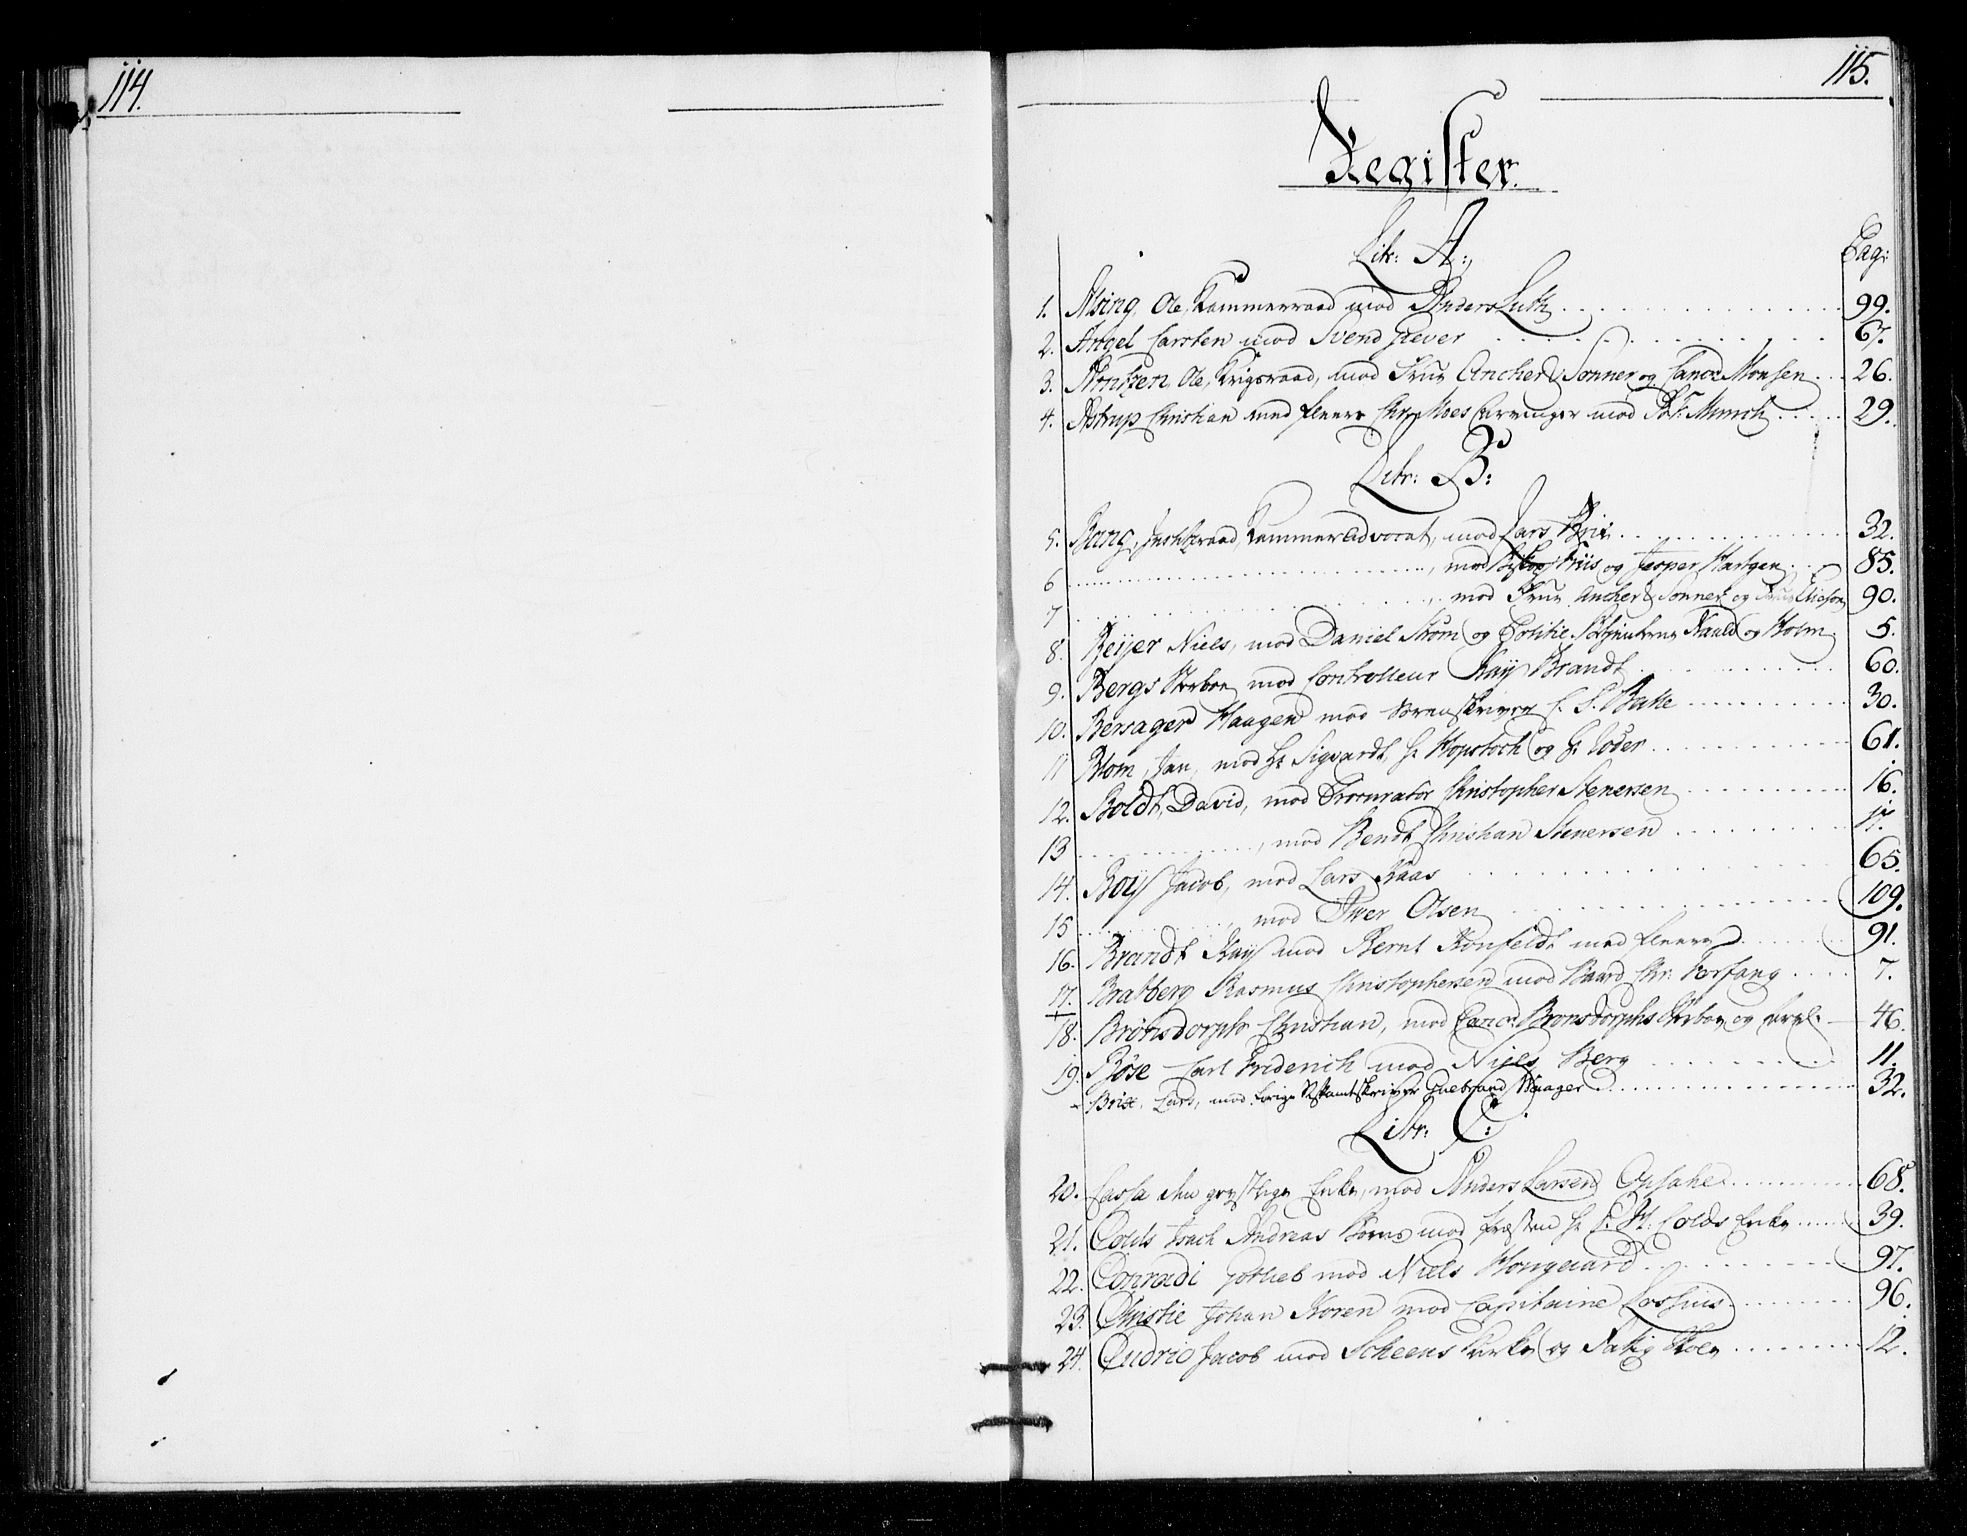 114.
115.
Register.
Litr: A:
Pag:
1. Alsing, Ole, Kammerraad mod Anders Luth 99.
2. Angel Carsten mod Svend Grever 67.
3. Arntzen, Ole, Krigsraad, mod Frue Ancher & Sønner og Cancr Monsen 26.
4. Astrup Christian med fleere Chr: Moes Arvinger mod Munch 29.
Litr: B:
5. Bang, Justitzraad, Kammeradvocat, mod Lars Brix 32.
6 mod Biskop Friis og Jesper Hartgen 85.
7 mod Frue Ancher & Sønner og Frue Elieson 90.
8. Beyer Niels, mod Daniel Strøm og Politie Betjenterne Rauld og Holm 5.
9. Bergs Sterboe mod Controlleur Kay Brandt 60.
10. Bersager Haagen mod Sorenskriver C. C. Bakke 30.
11 Blom, Jan, mod Hr Sigvardt, Hr Hopstoch og Hr Coder 61.
12. Boldt, David, mod Procurator Christopher Stenersen 16.
13 , mod Bendt Christian Stenersen 17.
14. Boy Jacob, mod Lars Kaas 65.
15 , mod Iwer Olsen 109.
16. Brandt Kay mod Bernt Konfeldt med fleere 91.
17. Bratberg Rasmus Christophersen mod Baard Chr: Forfang 7.
18. Brønsdorph Christian, mod Cancr: Brønsdorphs Sterboe og 46.
19. Bøse Carl Friderich mod Niels Berg 11.
- Brix, Lars, mod forige Restamtskriver Guebrand Haager 32.
Litr: C:
20. Cassa den geystlige Enke, mod Anders Larsen Opsahl 68.
21. Colds Isach Andreas Børns mod Præsten Hr C. H. Colds Enke 39.
22. Conradi Gotlieb mod Niels Hougaard 97.
23. Christie Johan Koren mod Capitaine Lossius 96.
24. Cudrio Jacob mod Scheens Kirke og Fatig Skole 12.